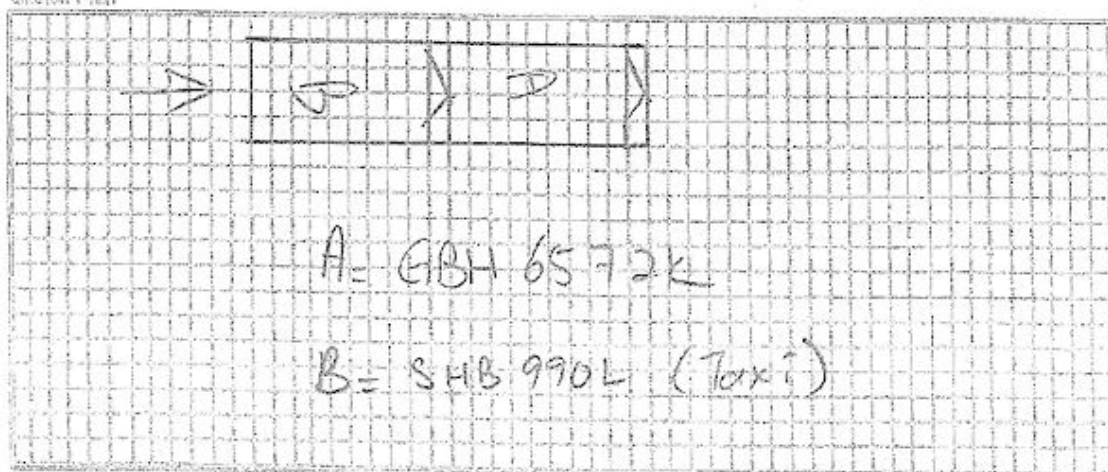 B A
A = GBH 6572K
B = SHB 990L (Taxi)